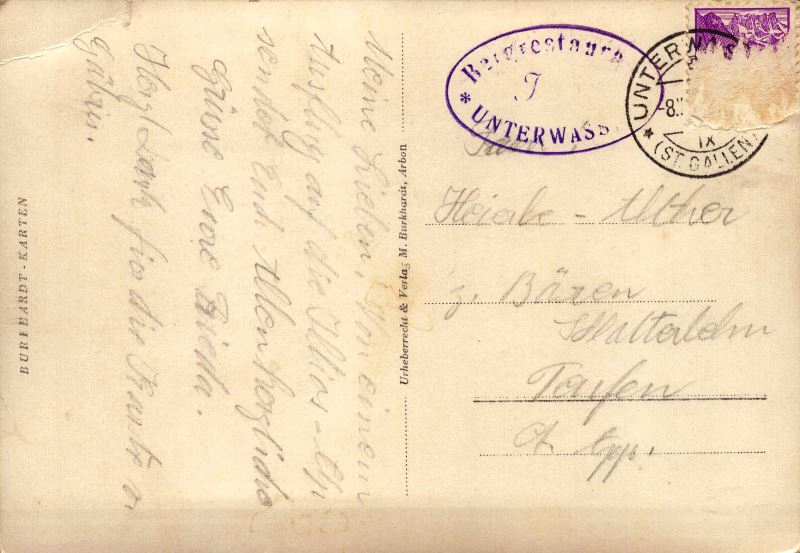 Meine Lieben, Von einem
Ausflug auf die Iltios-Alp
sendet Euch Allen herzliche
Grüsse Eure Frieda.
Herzl. Dank für die Karte v.
Gäbris.
BURKHARDT-KARTEN
Urheberrecht & Verlag M. Burkhardt, Arbon
Bergrestaura
* UNTERWASS
UNTERWASS
8.
IX
* (ST. GALLEN)
Fam.
Heierle - Alther
z. Bären
Schlatterlehn
Teufen
Ct. App.